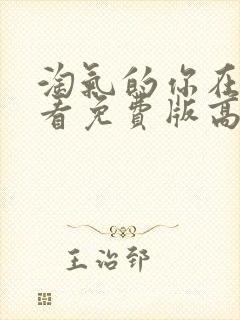 淘氣的你在
看免費版高
王治郅